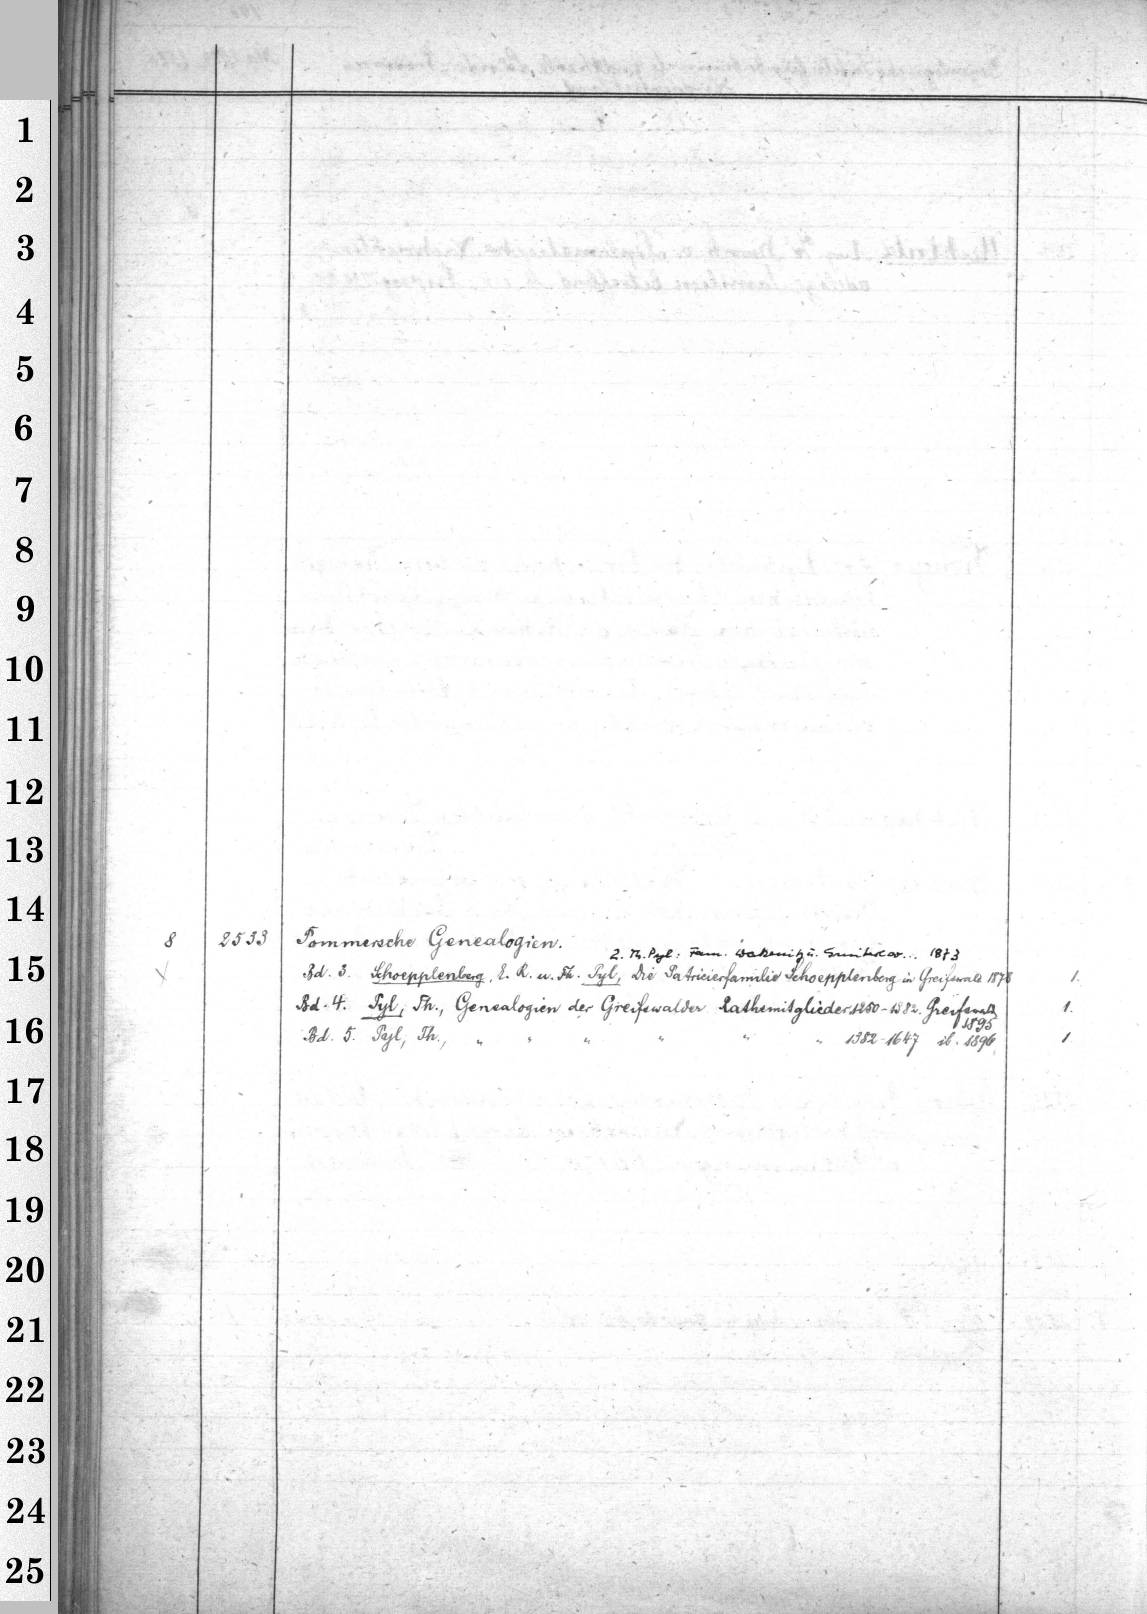 1
2
3
4
5
6
7
8
9
10
11
12
13
14
8 2533 Pommersche Genealogien.
2. Th. Pyl: Fam. 1873
15
Bd. 3. Schoepplenberg, E. R. u. Th. Pyl, Die Patricierfamilie Schoepplenberg in Greifswald 1878 1.
Bd. 4. Pyl, Th., Genealogien der Greifswalder Rathsmitglieder 1250-1382. Greifswald 1.
1895
16
Bd. 5. Pyl, Th., „ „ „ „ „ „ 1382-1647 ib. 1896. 1
17
18
19
20
21
22
23
24
25